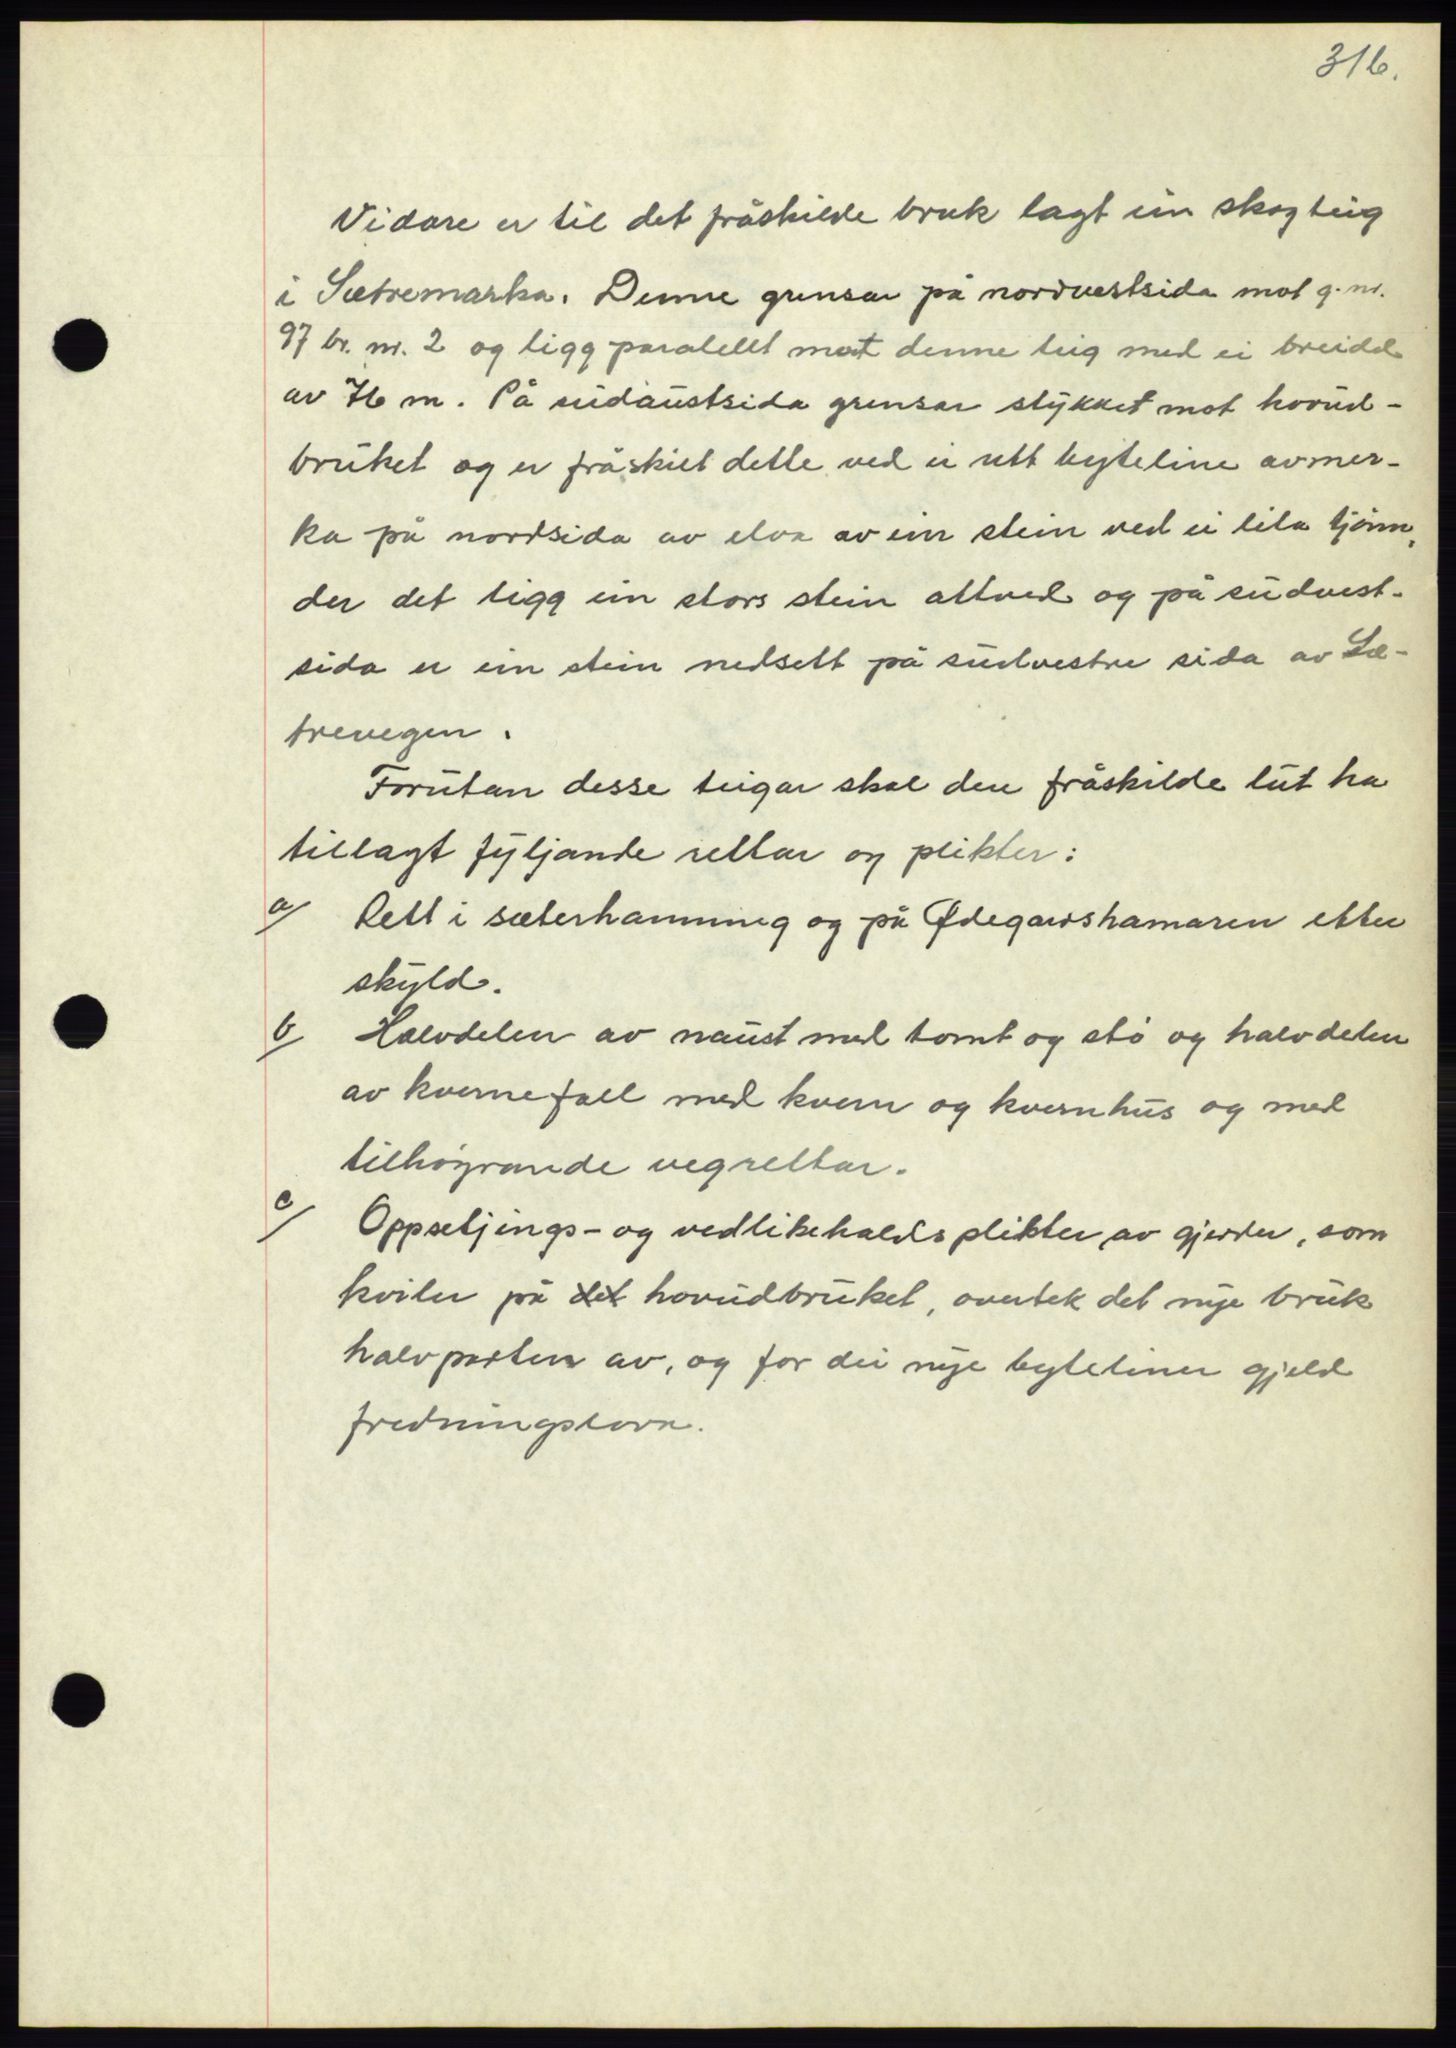 316.
Vidare er til det fråskilde bruk lagt ein skogteig
i Sætremarka. Denne grensar på nordvestsida mot g. nr.
97 br. nr. 2 og ligg paralellt mot denne teig med ei breidd
av 76 m. På sudaustsida grensar stykket mot hovud-
bruket og er fråskilt dette ved ei rett byteline avmer-
ka på nordsida av elva av ein stein ved ei lita tjönn,
der det ligg ein stors stein attved og på sudvest-
sida er ein stein nedsett på sudvestre sida av Sæ-
trevegen.
Forutan desse teigar skal den fråskilde lut ha
tillagt fyljande rettar og plikter:
a/ Rett i sæterhamning og på Ødegardshamaren etter
skyld.
b/ Halvdelen av naust med tomt og stö og halvdelen
av kvernefall med kvern og kvernhus og med
tilhøyrande vegrettar.
c/ Oppsetjings- og vedlikehalds plikter av gjerder, som
kviler på det hovudbruket, overtek det nye bruk
halvparten av, og for dei nye byteliner gjeld
fredningslova.